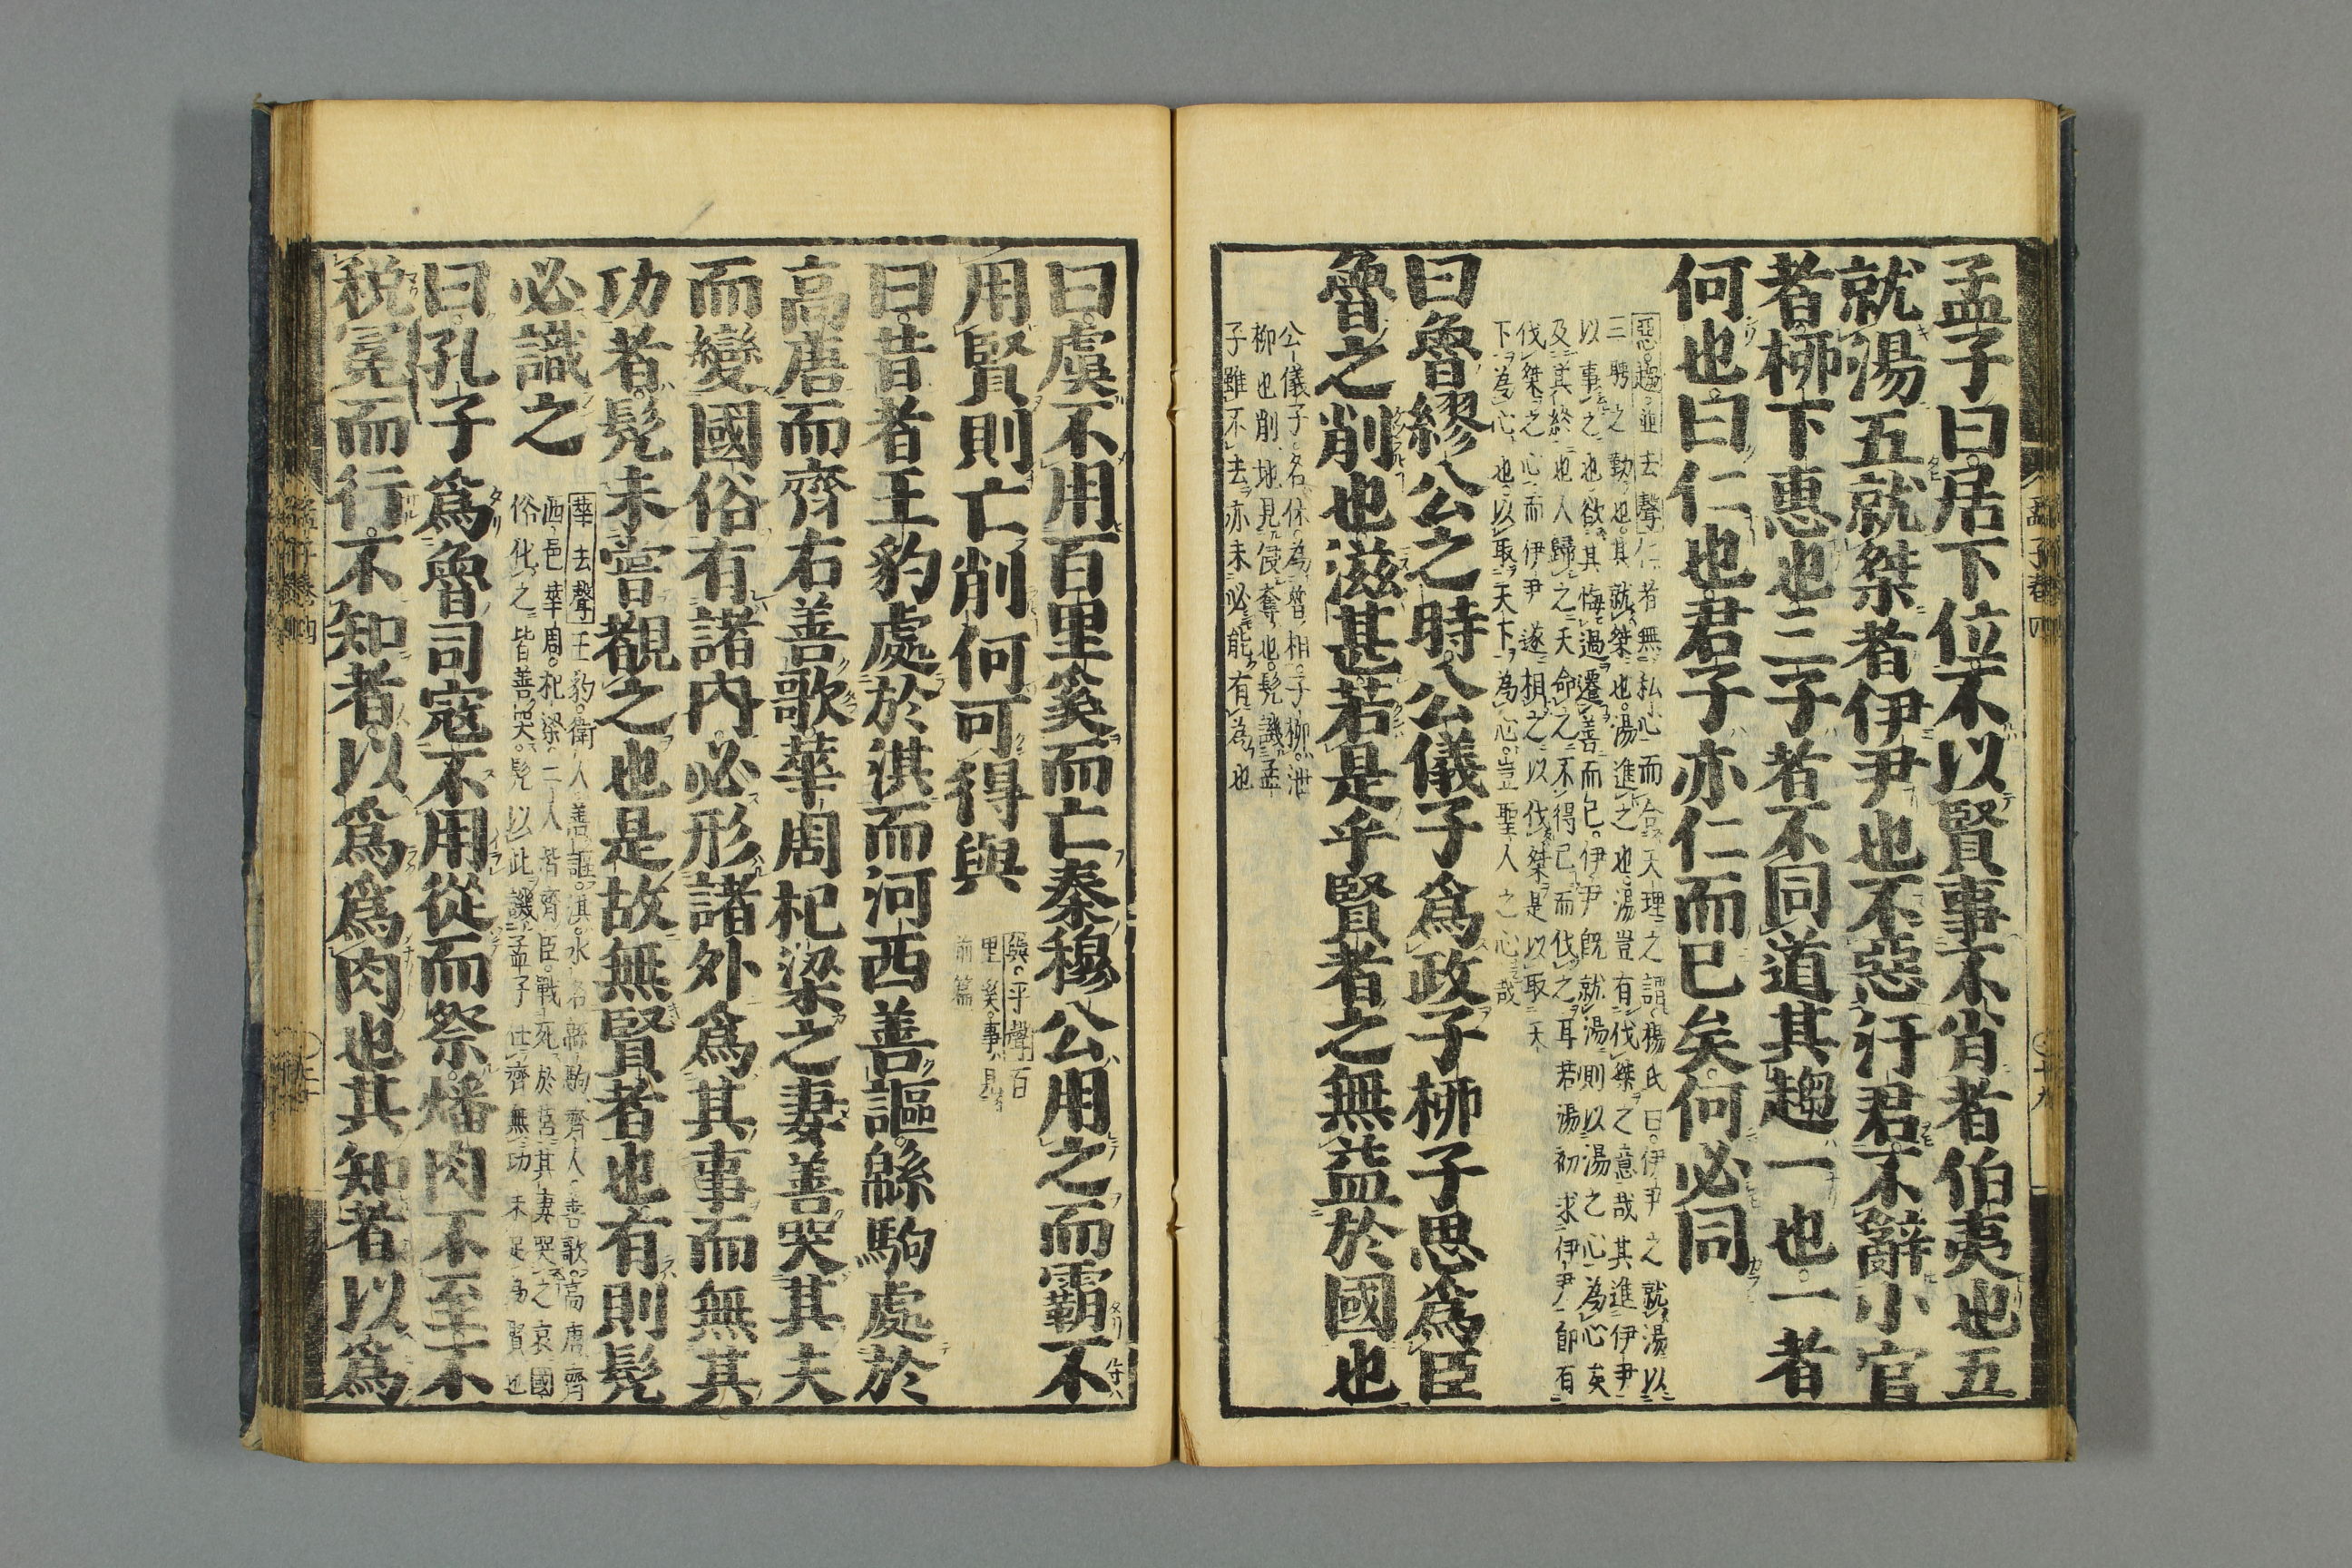 孟子曰居下位不以賢事不肖者伯夷也五
就湯五就桀者伊尹也不惡汙君不辭小官
者柳下惠也三子者不同道其趨一也一者
何也曰仁也君子亦仁而已矣何必同
惡趨並去聲仁者無私心而合天理之謂楊氏曰伊尹之就湯以
三聘之勤也其就桀也湯進之也湯豈有伐桀之意哉其進伊尹
以事之也欲其悔過遷善而已伊尹既就湯則以湯之心為心矣
及其終也人歸之天命之不得已而伐之耳若湯初求伊尹即有
伐桀之心而伊尹遂相之以伐桀是以取天
下為心也以取天下為心豈聖人之心哉
曰魯繆公之時公儀子爲政子柳子思爲臣
魯之削也滋甚若是乎賢者之無益於國也
公儀子名休為魯相子柳泄
柳也削地見侵奪也髡譏孟
子雖不去亦未必能有為也
曰虞不用百里奚而亡秦穆公用之而霸不
用賢則亡削何可得與
與平聲百
里奚事見
前篇
曰昔者王豹處於淇而河西善謳緜駒處於
高唐而齊右善歌華周杞梁之妻善哭其夫
而變國俗有諸內必形諸外爲其事而無其
功者髡未嘗覩之也是故無賢者也有則髡
必識之
華去聲王豹衛人善謳淇水名緜駒齊人善歌高唐齊
西邑華周杞梁二人皆齊臣戰死於莒其妻哭之哀國
俗化之皆善哭髡以此譏孟子仕齊無功未足為賢也
曰孔子爲魯司寇不用從而祭燔肉不至不
稅冕而行不知者以爲爲肉也其知者以爲
孟子卷四
十九
孟子卷四